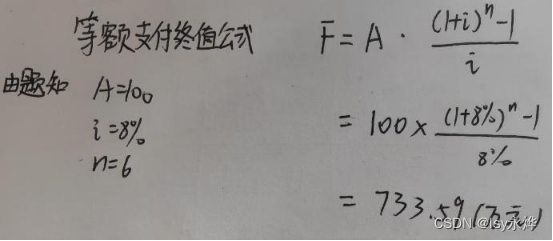 等额支付终值公式 F = A · ((1+i)^n - 1) / i
由题知 A=100
i=8%
n=6
= 100 × ((1+8%)^n - 1) / 8%
= 733.59 (万元)
CSDN @lsy永烨